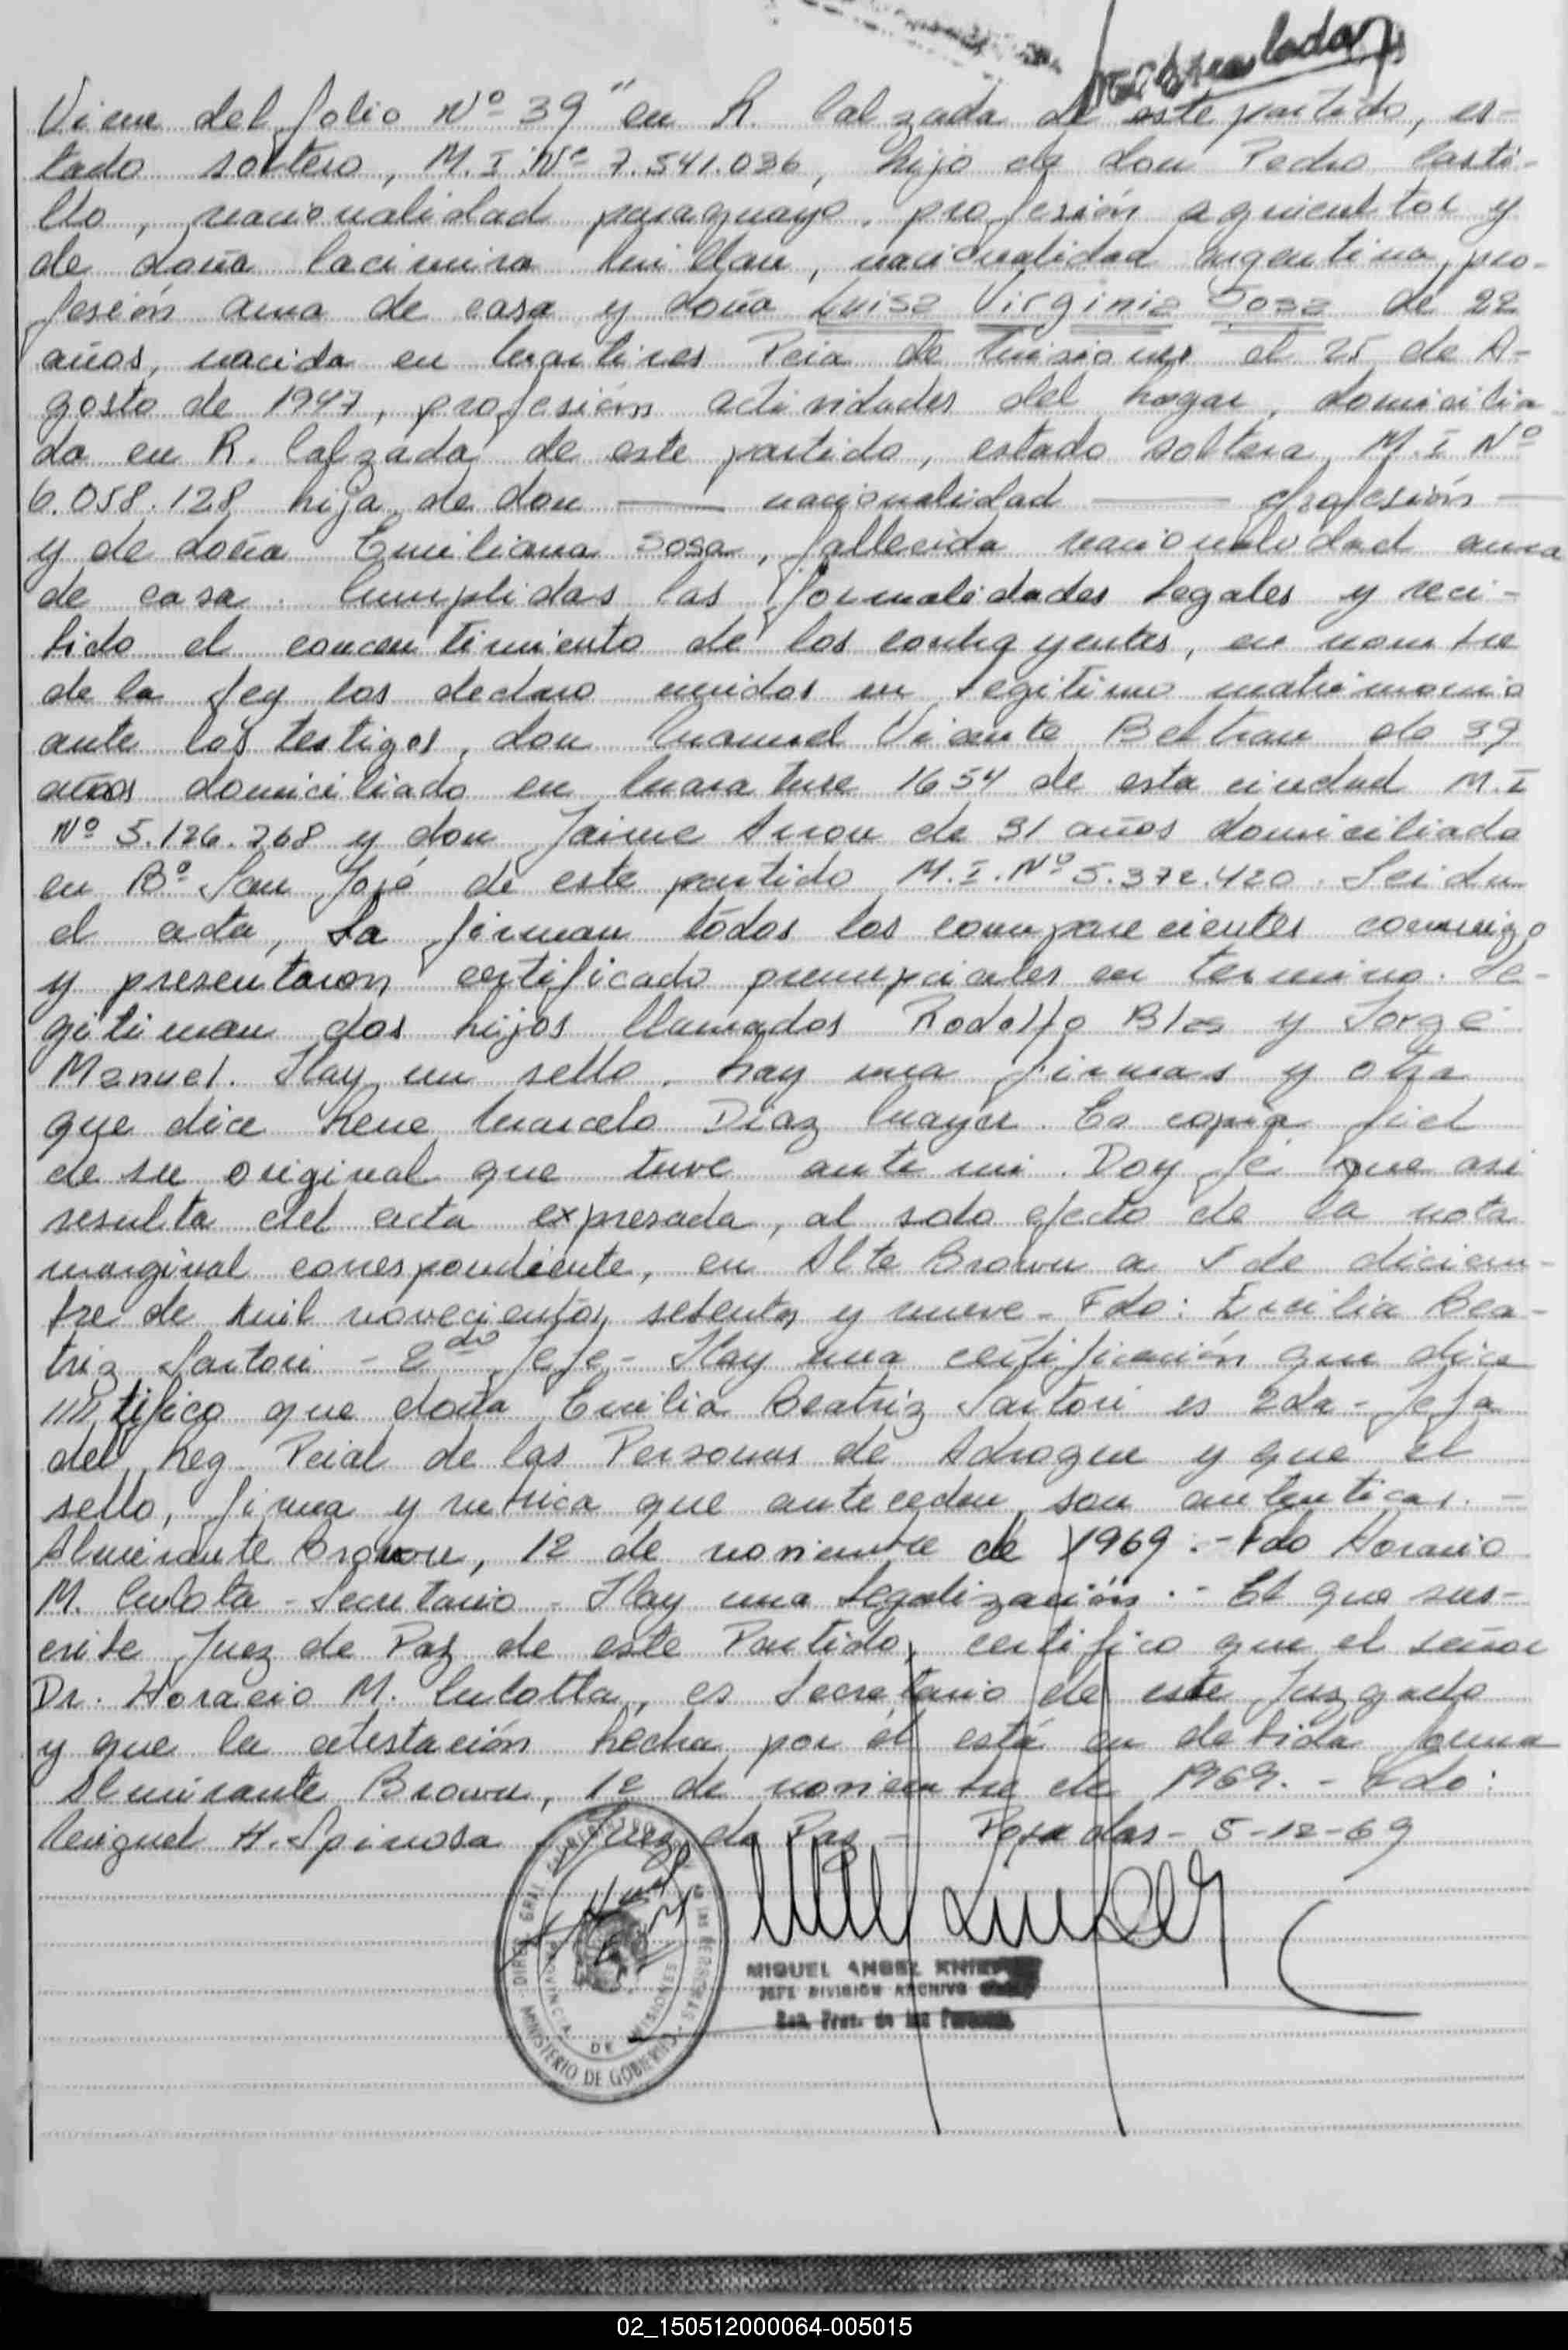 Viene del folio Nº 39 " en R. Calzada de este partido, es-
tado soltero, M.I. Nº 7.541.036, hijo de don Pedro Casti-
llo, nacionalidad paraguayo, profesión agricultor y
de doña Millan, nacionalidad argentina, pro-
fesión ama de casa y doña Luisa Virginia Sosa de 22
años, nacida en Martires Pcia de Misiones el 25 de A-
gosto de 1947, profesión actividades del hogar, domicilia
da en R. Calzada de este partido, estado soltera M.I Nº
6.058.128 hija de don —— nacionalidad —— profesión —
y de doña Emiliana Sosa, fallecida nacionalidad ama
de casa. Cumplidas las formalidades legales y reci-
bido el concentimiento de los contrayentes, en nombre
de la Ley los declaro unidos en legitimo matrimonio
ante los testigos, don Manuel Vicente Beltran de 39
años domiciliado en 1654 de esta ciudad M.I
Nº 5.126.268 y don Jaime de 31 años domiciliado
en Bº San José de este partido M.I. Nº 5.372.420. Leida
el acta, La firman todos los comparecientes conmigo
y presentaron certificado prenupciales en termino. Le-
gitiman dos hijos llamados Rodolfo Blas y Jorge
Manuel. Hay un sello. hay una firmas y otra
que dice Rene Marcelo Diaz Mayer. Es copia fiel
de su original que tuve ante mi. Doy fé que asi
resulta del acta expresada, al solo efecto de la nota
marginal correspondiente, en Alte Brown a 5 de diciem-
bre de mil novecientos setenta y nueve - Fdo: Emilia Bea-
triz Sartori - 2do Jefe - Hay una certificación que dice
//// tifico que doña Emilia Beatriz Sartori es 2da - Jefa
del Reg. Pcial de las Personas de Adrogue y que el
sello, firma y rubrica que anteceden son autenticas. -
Almirante Brown, 12 de noviembre de 1969. - Fdo Horacio
M. Culota - Secretario - Hay una Legalización. - El que sus-
cribe Juez de Paz de este Partido, certifico que el señor
Dr. Horacio M. Culotta, es Secretario de este Juzgado
y que la atestación hecha por él está en debida forma
Almirante Brown, 12 de noviembre de 1969. - Fdo:
Miguel H. Spinosa - Juez de Paz - Posadas - 5-12-69
MIGUEL ANGEL
JEFE DIVISION ARCHIVO
Reg. Prov. de las Personas
PROVINCIA DE MISIONES
MINISTERIO DE GOBIERNO
02_150512000064-005015